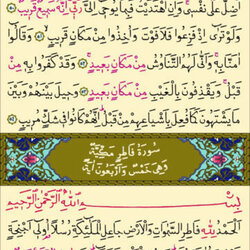 أَضِلُّ عَلَىٰ نَفْسِي وَإِنِ اهْتَدَيْتُ فَبِمَا يُوحِي إِلَيَّ رَبِّي إِنَّهُ سَمِيعٌ قَرِيبٌ ﴿٥٠﴾
وَلَوْ تَرَىٰ إِذْ فَزِعُوا فَلَا فَوْتَ وَأُخِذُوا مِنْ مَكَانٍ قَرِيبٍ ﴿٥١﴾ وَقَالُوا
آمَنَّا بِهِ وَأَنَّىٰ لَهُمُ التَّنَاوُشُ مِنْ مَكَانٍ بَعِيدٍ ﴿٥٢﴾ وَقَدْ كَفَرُوا بِهِ مِنْ
قَبْلُ وَيَقْذِفُونَ بِالْغَيْبِ مِنْ مَكَانٍ بَعِيدٍ ﴿٥٣﴾ وَحِيلَ بَيْنَهُمْ وَبَيْنَ
مَا يَشْتَهُونَ كَمَا فُعِلَ بِأَشْيَاعِهِمْ مِنْ قَبْلُ إِنَّهُمْ كَانُوا فِي شَكٍّ مُرِيبٍ ﴿٥٤﴾
سُورَةُ فَاطِرٍ مَكِّيَّةٌ
وَهِيَ خَمْسٌ وَأَرْبَعُونَ آيَةً
بِسْمِ اللَّهِ الرَّحْمَٰنِ الرَّحِيمِ
الْحَمْدُ لِلَّهِ فَاطِرِ السَّمٰوَاتِ وَالْأَرْضِ جَاعِلِ الْمَلٰئِكَةِ رُسُلًا أُولِي أَجْنِحَةٍ